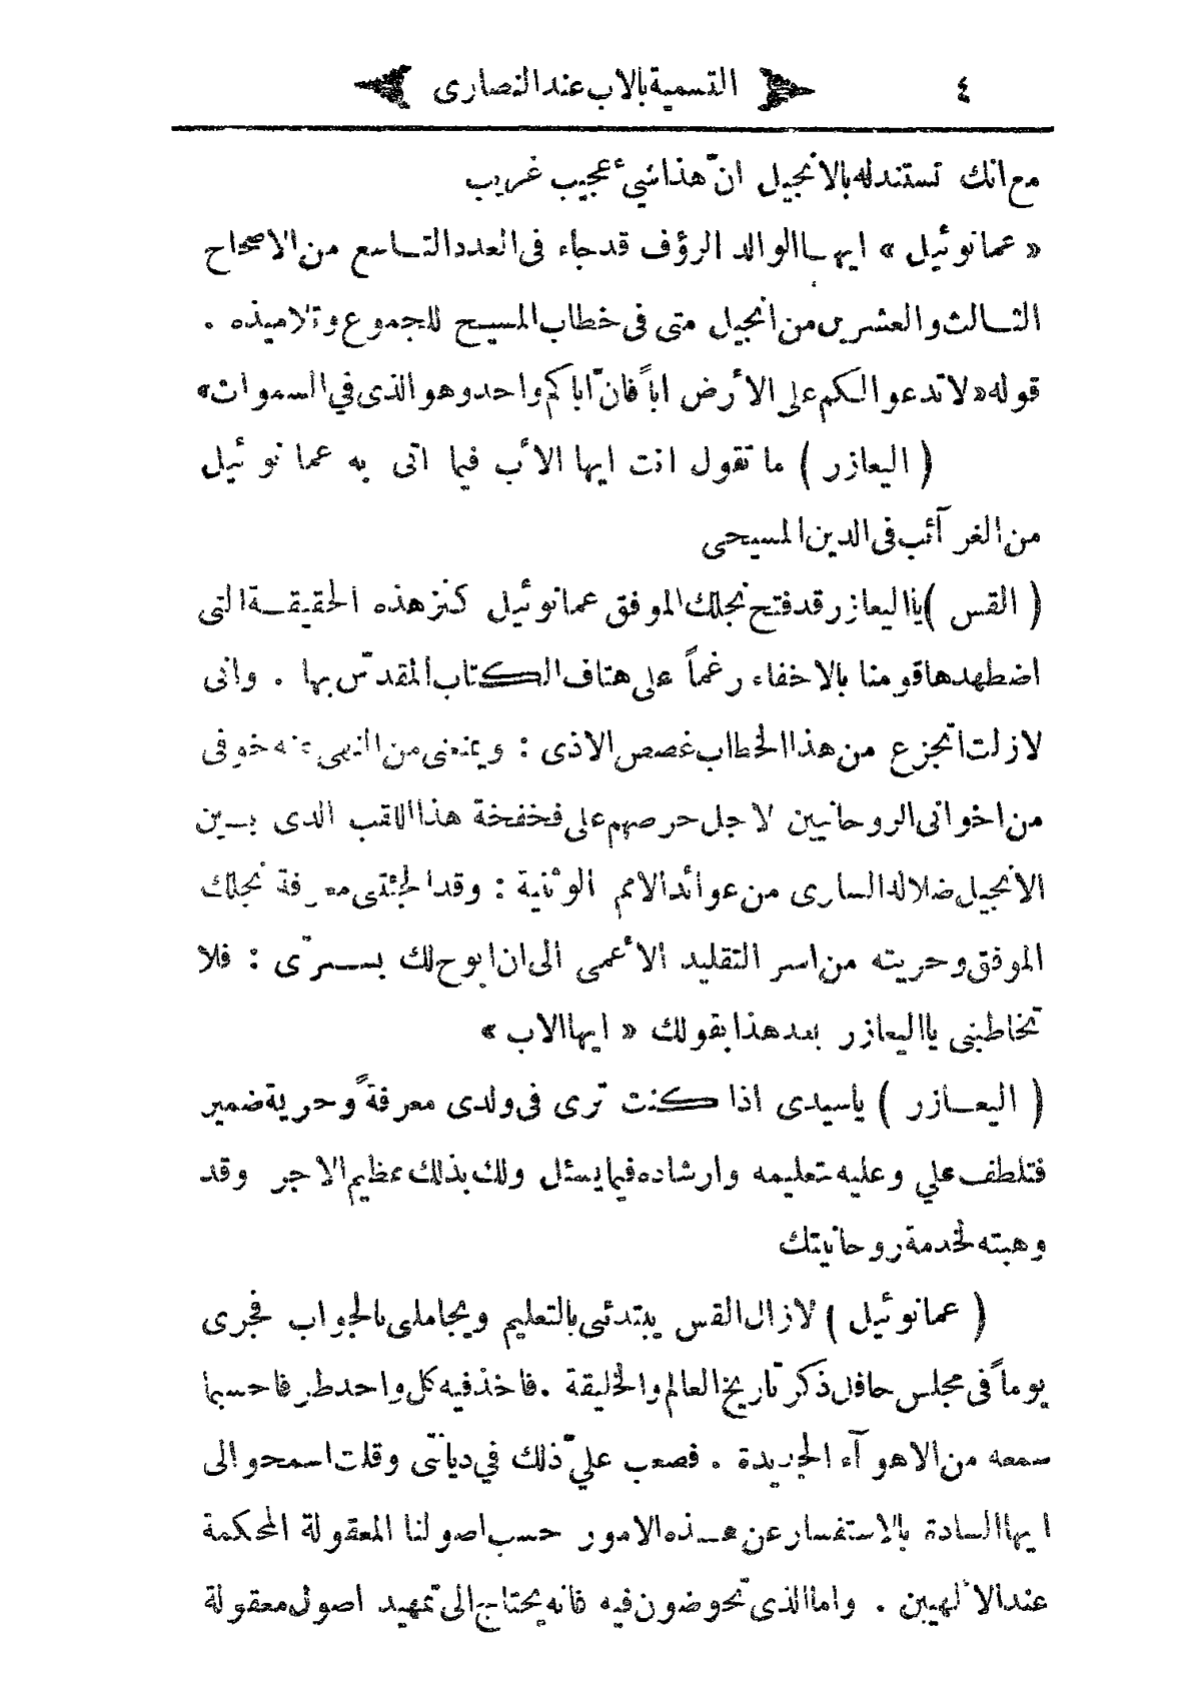 ٤ التسمية بالاب عند النصارى
مع انك تستند له بالانجيل انّ هذا شيئ عجيب غريب
« عمانوئيل » ايها الوالد الرؤف قد جاء فى العدد التاسع من الاصحاح
الثالث والعشرين من انجيل متى فى خطاب المسيح للجموع وتلاميذه .
قوله «لا تدعوا لكم على الأرض اباً فانّ اباكم واحد وهو الذى في السموات»
( اليعازر ) ما تقول انت ايها الأب فيما اتى به عمانوئيل
من الغرآئب فى الدين المسيحى
( القس ) يا اليعازر قد فتح نجلك الموفق عمانوئيل كنز هذه الحقيقة التى
اضطهدها قومنا بالاخفاء رغماً على هتاف الكتاب المقدّس بها . وانى
لازلت اتجزع من هذا الخطاب غصص الاذى : ويمنعنى من النهى عنه خوفى
من اخوانى الروحانيين لاجل حرصهم على فخفخة هذا اللقب الذى بين
الانجيل ضلاله السارى من عوائد الامم الوثنية : وقد الجئتنى معرفة نجلك
الموفق وحريته من اسر التقليد الأعمى الى ان ابوح لك بسرّى : فلا
تخاطبنى يا اليعازر بعد هذا بقولك « ايها الاب »
( اليعازر ) ياسيدى اذا كنت ترى فى ولدى معرفةً وحرية ضمير
فتلطف علي وعليه بتعليمه وارشاده فيما يسئل ولك بذلك عظيم الاجر وقد
وهبته لخدمة روحانيتك
( عمانوئيل ) لازال القس يبتدئنى بالتعليم ويجاملنى بالجواب فجرى
يوماً فى مجلس حافل ذكر تاريخ العالم والخليقة . فاخذ فيه كل واحد طرفا حسبما
سمعه من الاهوآء الجديدة . فصعب عليّ ذلك في ديانتى وقلت اسمحوا لى
ايها السادة بالاستفسار عن هذه الامور حسب اصولنا المعقولة المحكمة
عند الالهيين . واما الذى تخوضون فيه فانه يحتاج الى تمهيد اصول معقولة